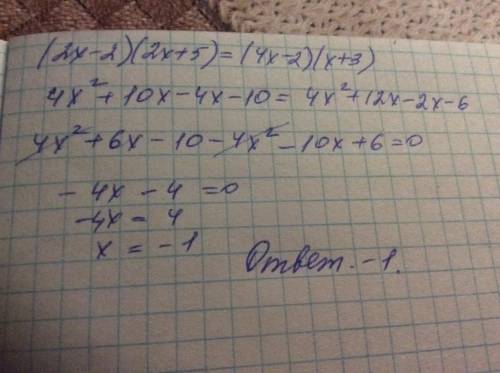 (2x-2)(2x+5)=(4x-2)(x+3)
4x²+10x-4x-10=4x²+12x-2x-6
4x²+6x-10-4x²-10x+6=0
-4x-4=0
-4x=4
x=-1
Ответ. -1.